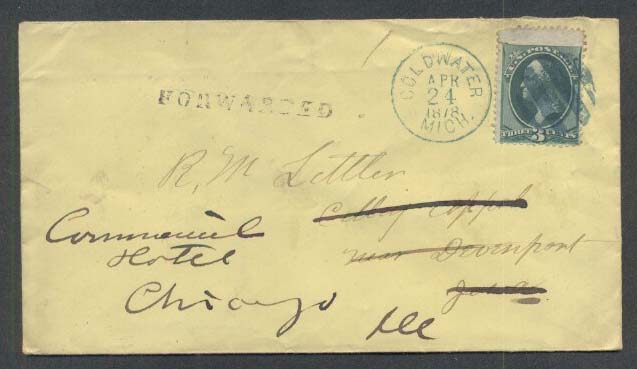 COLDWATER
APR
24
1878
MICH.
U.S. POSTAGE
THREE 3 CENTS
FORWARDED
R. M. Littler
near Davenport
Iowa
Commercial
Hotel
Chicago
Ill